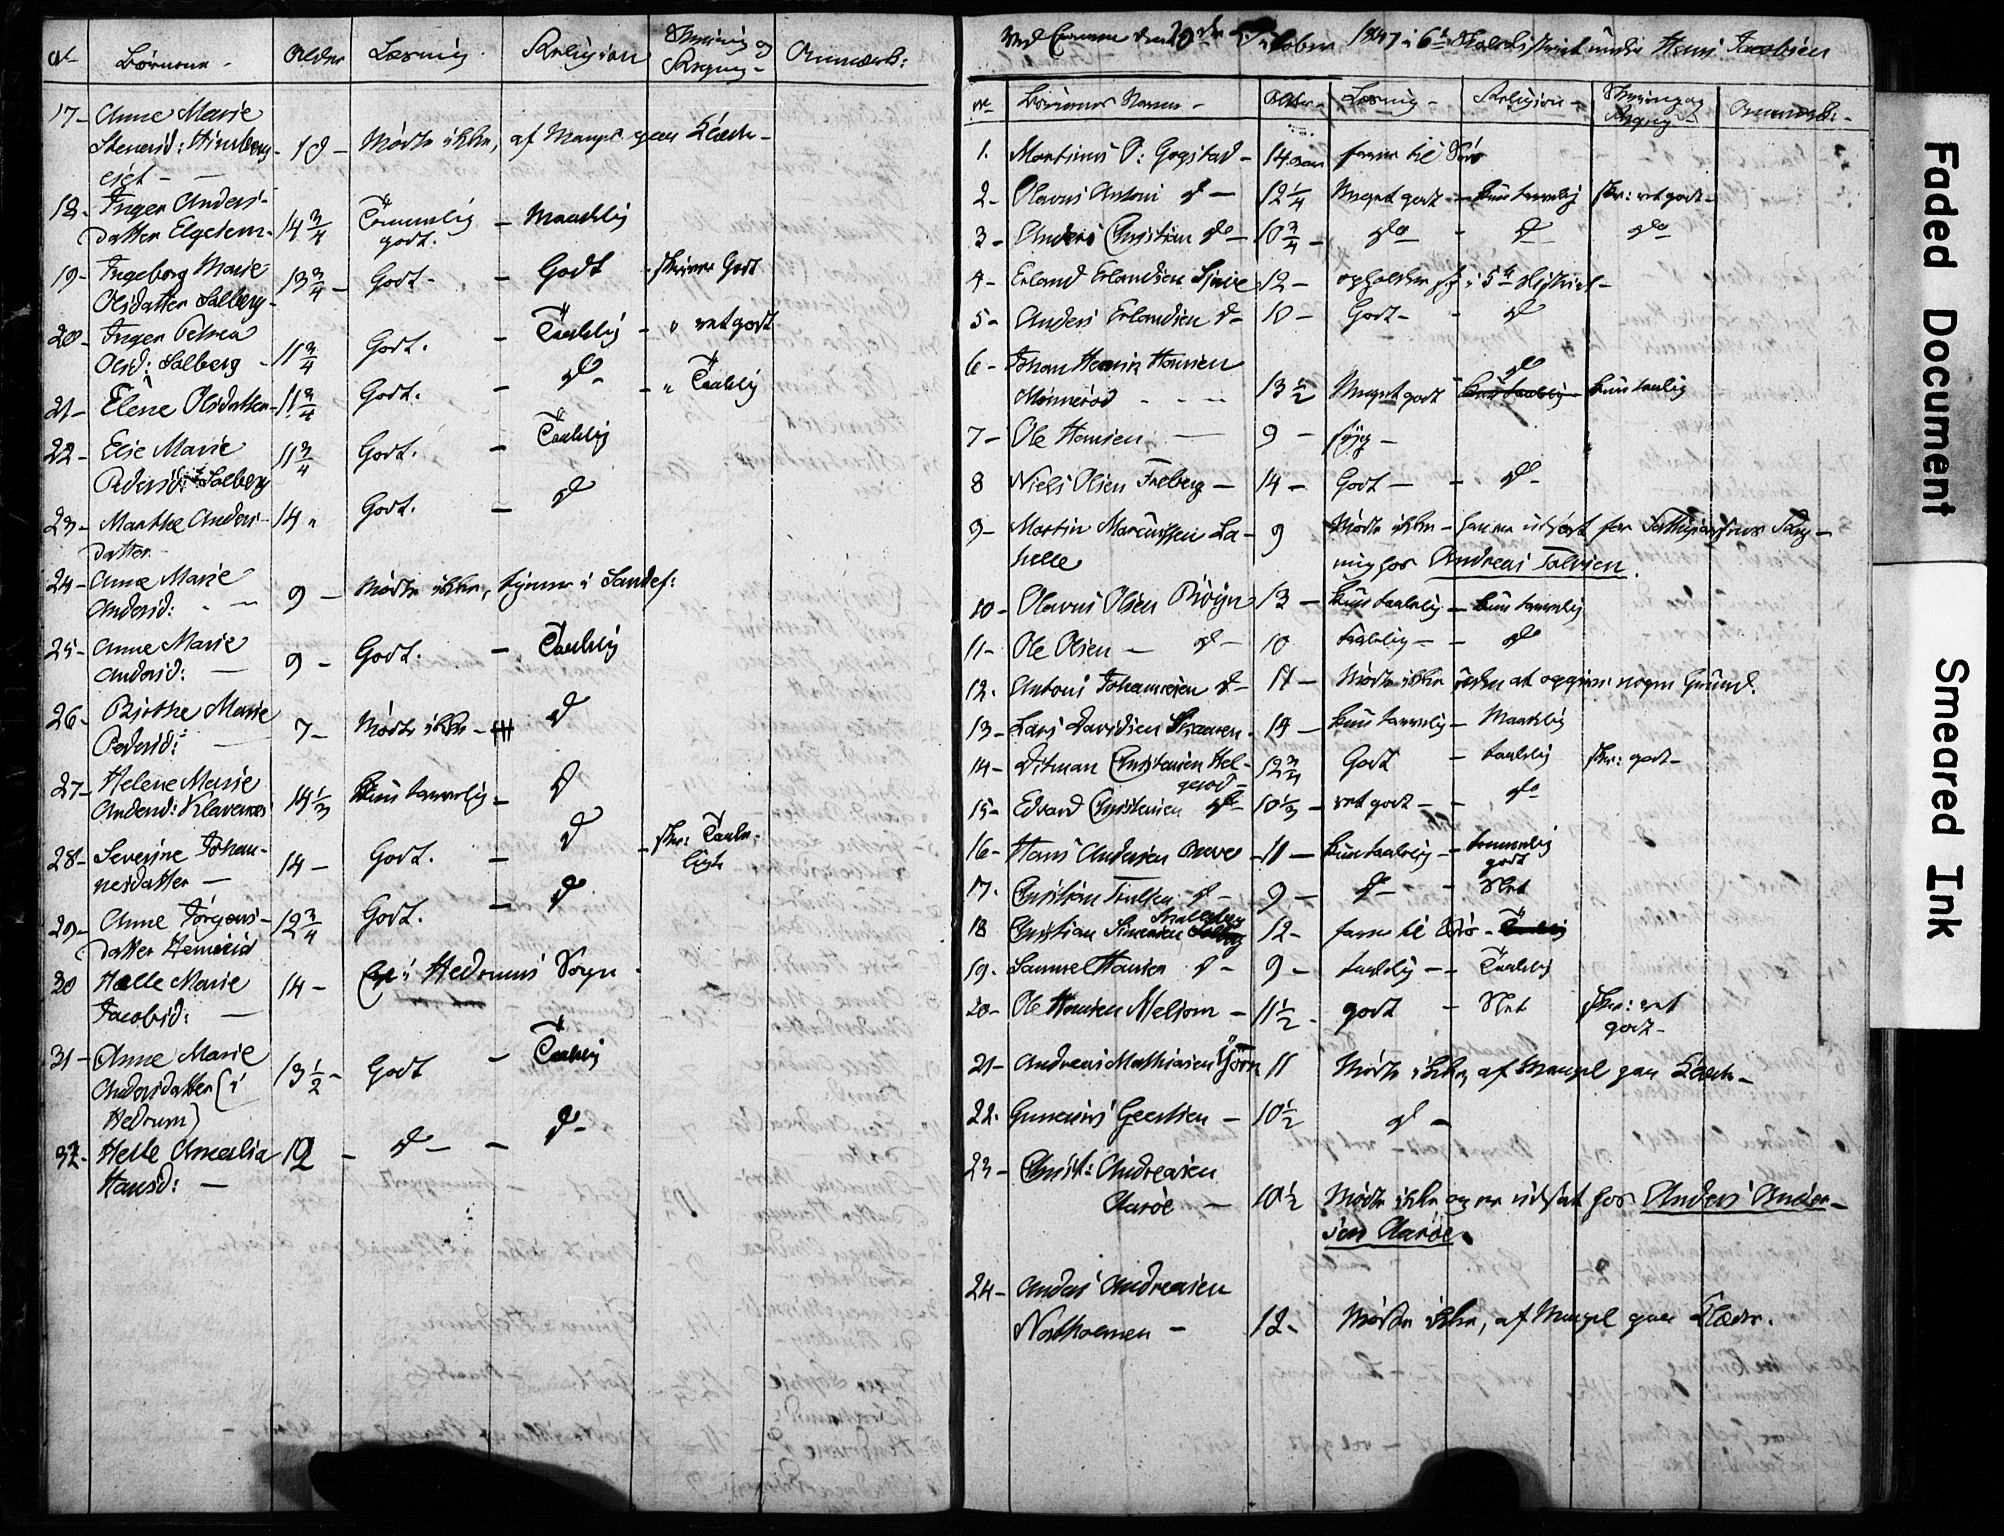 No Børnene - Alder Læsning Religion Skrivning og Regning - Anmærk:
17- Anne Marie
Stensd: Himberg- 10 - Mødte ikke, af Mangel paa Klæder-
ejet -
18- Inger Anders-
datter Elgesem- 14 3/4 Temmelig godt. - Maadelig
19- Ingeborg Marie
Olsdatter Solberg- 13 3/4 - Godt - - Godt - skriver Godt
20- Inger Petrea
Olsd: Solberg - 11 3/4 Godt. - Taalelig - " ret godt
21- Elene Olsdatter- 11 3/4 Godt. - do - " Taalelig
22- Else Marie
Pedersd: Solberg 11 3/4 Godt. - Taalelig
23- Marthe Anders-
datter 14 " Godt. - do
24- Anne Marie
Andersd: - 9 - Mødte ikke, tjener i Sandef:
25- Anne Marie
Andersd: - 9 - Godt. - Taalelig
26- Birthe Marie
Pedersd: - 7 - Mødte ikke - do
27- Helene Marie
Andersd: Klavenes 14 1/3 kun temmelig - do
28- Severine Johan-
nesdatter - 14 - Godt. - do - skr: Taale-
ligt
29- Anne Jørgens-
datter Hemserød 12 3/4 Godt. - do
30 Helle Marie
Jacobsd: - 14 - Er i Hedrums Sogn
31- Anne Marie
Andersdatter (i 13 1/2 - Godt - Taalelig
Hedrum)
32- Helle Amalia 12 - do - - do -
Hansd: -
Ved Examen den 20de October 1847 i 6te Skoledistrict under Hans Jacobsen
No Børnenes Navne - Alder - Læsning - Religion - Skrivning og Regning - Anmærk: -
1. Martinus O: Gogstad - 14 aar faren til Søes
2- Olavus Antoni do - 12 1/4 Meget godt - kun temmelig skr: ret godt -
3- Anders Christian do - 10 3/4 - do - do do
4- Erland Erlandsen 12 - opholder sig i 5te District -
5- Anders Erlandsen do - 10 - Godt - - do
6- Johan Henrik Hansen
Mønnerød - - - 13 1/2 Meget godt - do kun taalelig
7- Ole Hansen - 9 - syg -
8 Niels Olsen Freberg - 14 - Godt - - do -
9- Martin Marcussen La- 9 Mødte ikke - han er udsat
helle hos Andreas Tolvsen.
10- Olavus Olsen Bøyn 13 - kun taalelig - kun temmelig
11- Ole Olsen - do - 10 taalelig - - do
12. Antoni Johannesen do - 11 - Mødte ikke uden at opgive nogen Grund.
13- Lars Davidsen - 14 - kun temmelig - Maadelig
14- Ditman Christensen Hel-
gerød - 12 3/4 Godt - taalelig skr: godt -
15- Edvard Christensen do 10 1/3 - ret godt - - do
16- Hans Andersen Breve - 11 - kun taalelig - temmelig
godt
17. Christian do - 9 - do - Slet
18 Christian Simensen 12 - faren til Søes - Taalelig
19. Samuel Hansen do - 9 - taalelig - - Taalelig
20- Ole Hansen Melsom - 11 1/2 - godt - Slet skr: ret
godt -
21- Andreas Mathiasen 11 Mødte ikke, af Mangel paa Klæder -
22. Gunerius Geertsen - 10 1/2 do -
23- Christ: Andreasen
Aarøe - 10 1/2 Mødte ikke og er udsat hos Anders Ander-
sen Aarøe.
24- Anders Andreasen
Nordholmen - 12 - Mødte ikke, af Mangel paa Klæder.
Faded Document
Smeared Ink